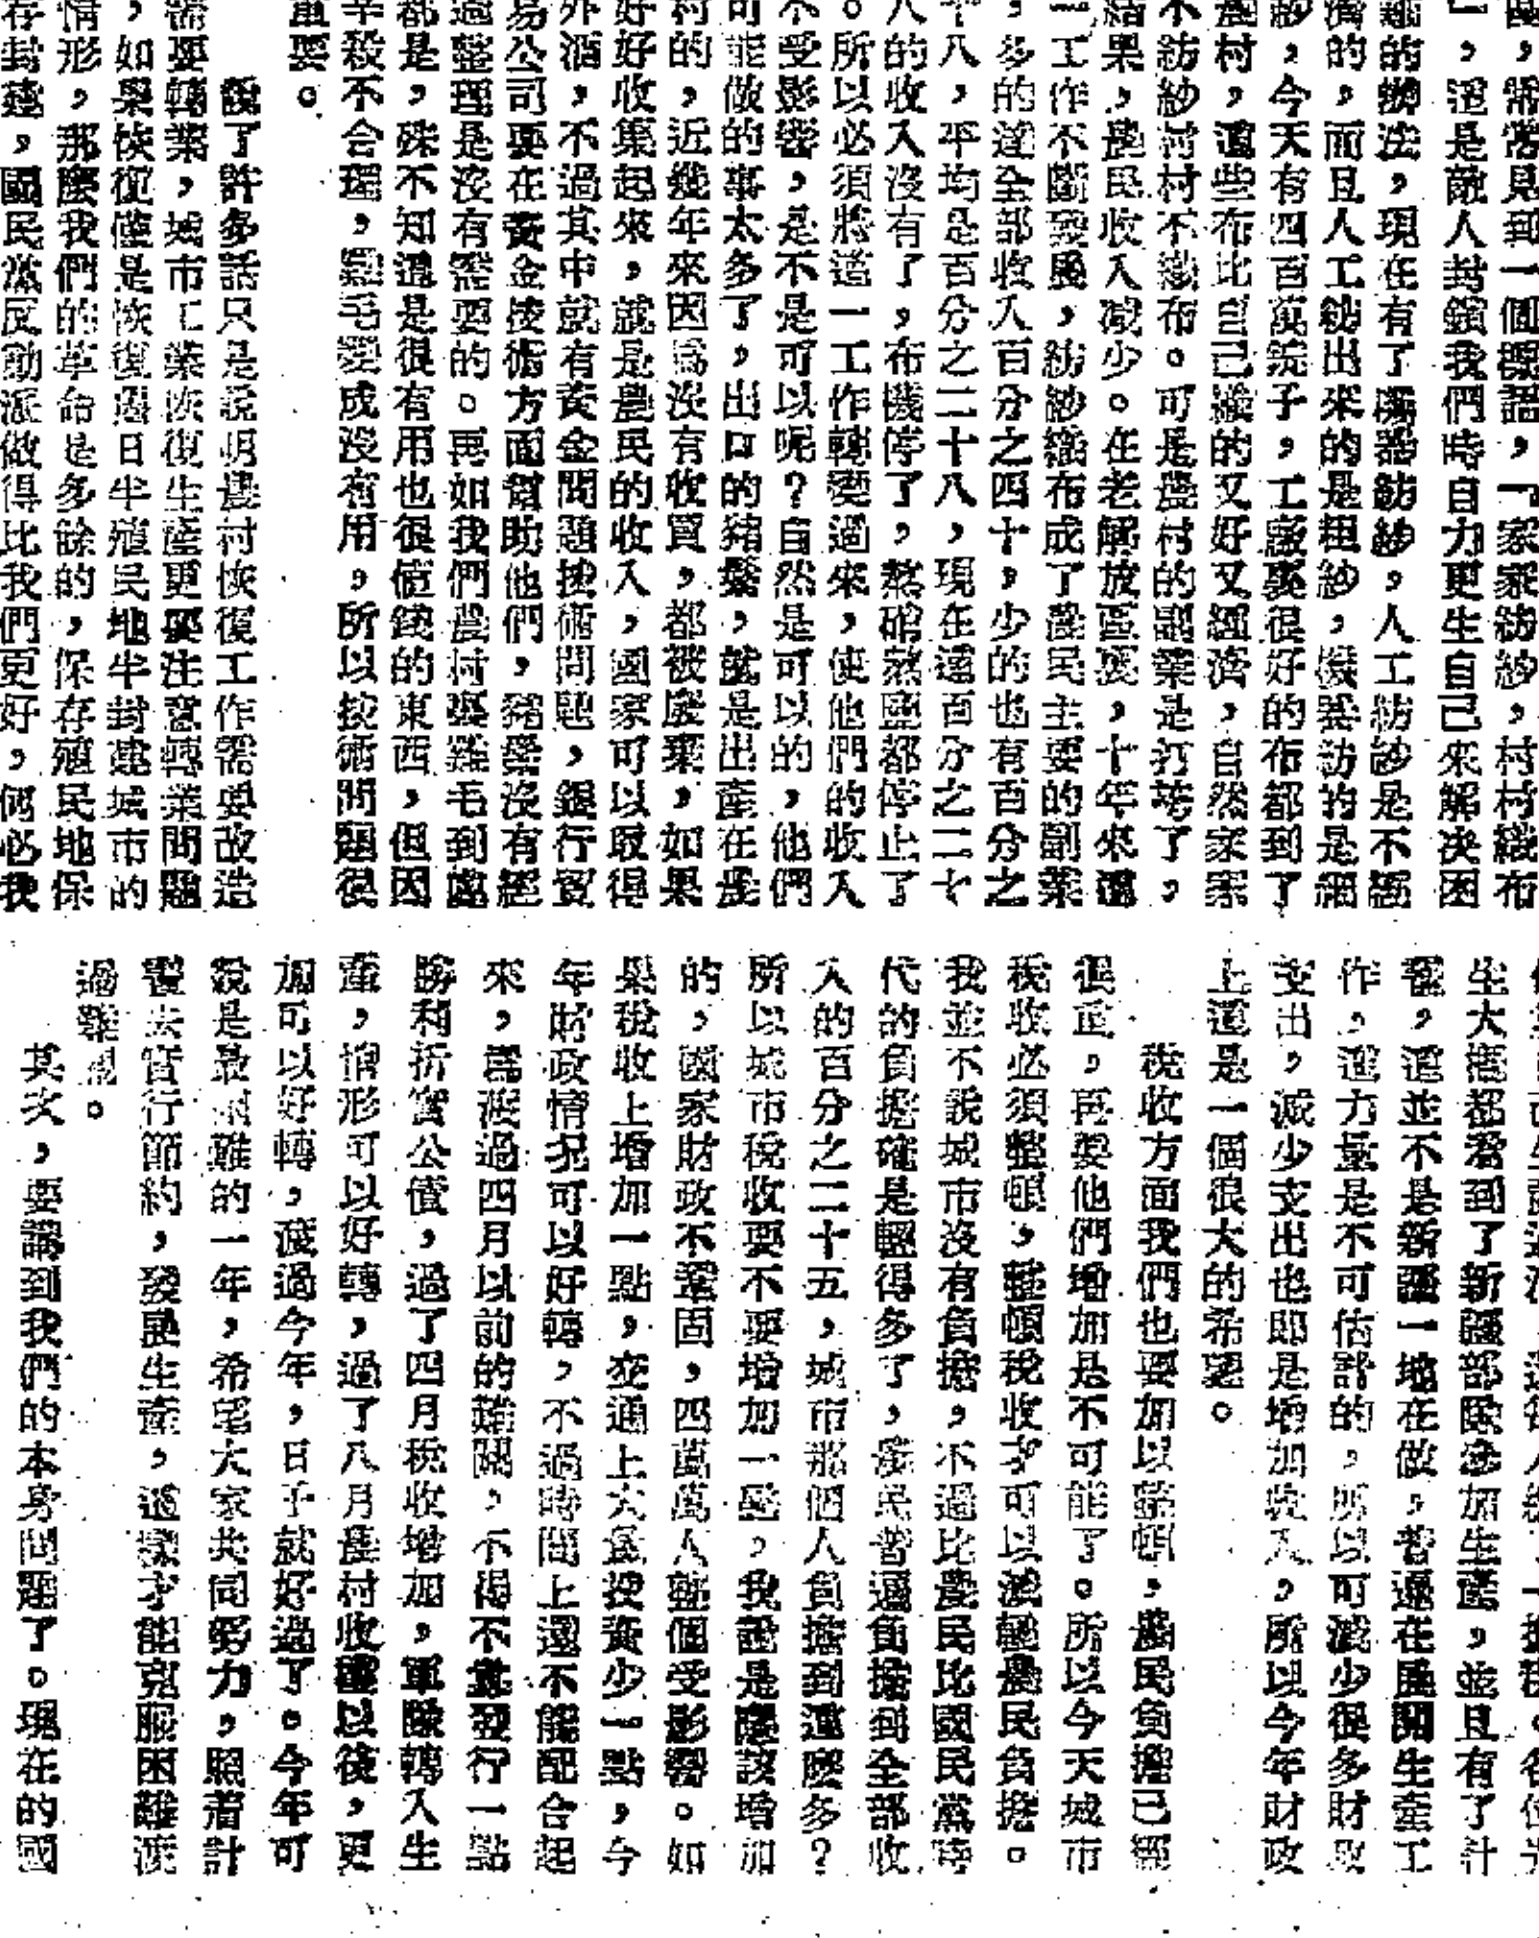 國，常常見到一個標語，「家家紡紗，村村織布
」，這是敵人封鎖我們時自力更生自己來解决困
難的辦法，現在有了機器紡紗，人工紡紗是不經
濟的，而且人工紡出來的是粗紗，機器紡的是細
紗，今天有四百萬錠子，工廠裏很好的布都到了
農村，這些布比自己織的又好又經濟，自然家家
不紡紗村村不織布。可是農村的副業是打垮了，
結果，農民收入减少。在老解放區裏，十年來這
一工作不斷發展，紡紗織布成了農民主要的副業
，多的達全部收入百分之四十，少的也有百分之
十八，平均是百分之二十八，現在這百分之二十
八的收入沒有了，布機停了，熬硝熬鹽都停止了
。所以必須將這一工作轉變過來，使他們的收入
不受影響，是不是可以呢？自然是可以的，他們
可能做的事太多了，出口的猪鬃，就是出產在農
村的，近幾年來因爲沒有收買，都被廢棄，如果
好好收集起來，就是農民的收入，國家可以取得
外滙，不過其中就有資金問題技術問題，銀行貿
易公司要在資金技術方面幫助他們，猪鬃沒有經
過整理是沒有需要的。再如我們農村裏雞毛到處
都是，殊不知這是很有用也很値錢的東西，但因
辛殺不合理，雞毛變成沒有用，所以技術問題很
重要。
說了許多話只是說明農村恢復工作需要改造
需要轉業，城市工業恢復生產更要注意轉業問題
，如果恢復僅是恢復過日半殖民地半封建城市的
情形，那麽我們的革命是多餘的，保存殖民地保
存封建，國民黨反動派做得比我們更好，何必我
生大概都看到了新疆部隊參加生產，並且有了計
，這並不是新疆一地在做，普遍在展開生產工
作，這力量是不可估計的，所以可减少很多財政
支出，减少支出也即是增加收入，所以今年財政
上這是一個很大的希望。
稅收方面我們也要加以整頓，農民負擔已經
很重，再要他們增加是不可能了。所以今天城市
稅收必須整頓，整頓稅收才可以减輕農民負擔。
我並不說城市沒有負擔，不過比農民比國民黨時
代的負擔確是輕得多了，農民普遍負擔到全部收
入的百分之二十五，城市那個人負擔到這麽多？
所以城市稅收要不要增加一點，我說是應該增加
的，國家財政不鞏固，四萬萬人整個受影響。如
果稅收上增加一點，交通上大量投資少一點，今
年財政情况可以好轉，不過時間上還不能配合起
來，爲渡過四月以前的難關，不得不發行一點
勝利折實公債，過了四月稅收增加，軍隊轉入生
產，情形可以好轉，過了八月農村收穫以後，更
加可以好轉，渡過今年，日子就好過了。今年可
說是最困難的一年，希望大家共同努力，照着計
畫去實行節約，發展生產，這樣才能克服困難渡
過難關。
其次，要講到我們的本身問題了。現在的國